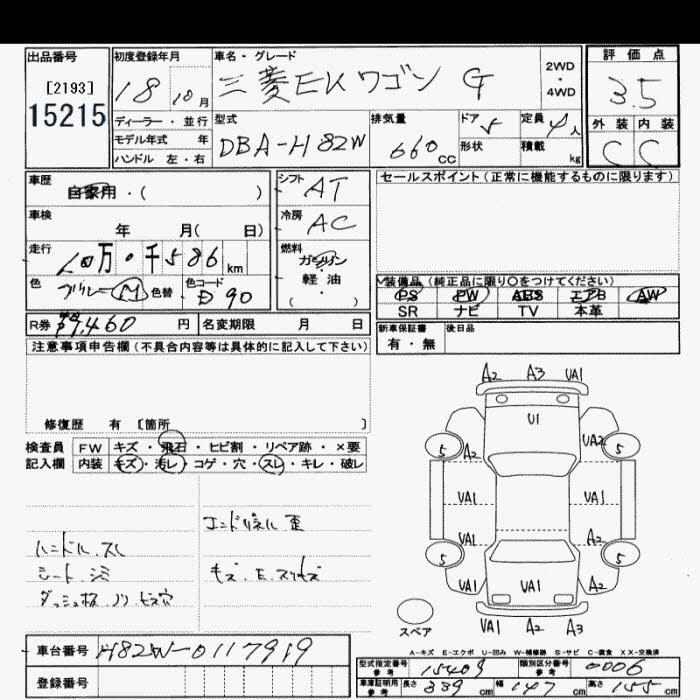 出品番号 初度登録年月 車名・グレード 評価点
[2193] 18 10月 三菱EKワゴン G 2WD・4WD 3.5
15215 ディーラー・並行 型式 排気量 ドア 5 定員 4人 外装 内装
モデル年式 年 DBA-H82W 660cc 形状 積載 kg C C
ハンドル 左・右
車歴 自家用・( ) シフト AT セールスポイント(正常に機能するものに限ります)
車検 年 月( 日) 冷房 AC
走行 10万0千586km 燃料 ガソリン
軽油
( )
色 ブルーM 色替 色コード D90 装備品(純正品に限り○をつけてください)
PS PW ABS エアB AW
SR ナビ TV 本革
R券 ¥9,460円 名変期限 月 日 新車保証書 後日品
有・無
注意事項申告欄(不具合内容等は具体的に記入して下さい)
修復歴 有 [箇所 ]
検査員 FW キズ・飛石・ヒビ割・リペア跡・×要
記入欄 内装 キズ・汚レ・コゲ・穴・スレ・キレ・破レ
エンドパネル歪
ハンドル.スレ
シート.シミ キズ.E.スリキズ
ダッシュ板.ノリ.ビス穴
A2 A3 VA1
U1
5 A2 VA2 5
VA1 VA1 VA1
VA1 A2
5 5
VA1 VA1 A2
スペア VA1 A2 A3
A-キズ E-エクボ U-凹み W-補修跡 S-サビ C-腐食 XX-交換済
車台番号 H82W-0117919
登録番号
型式指定番号 参考 15409 類別区分番号 参考 0006
車庫証明用 参考 長さ 339cm 幅 147cm 高さ 155cm